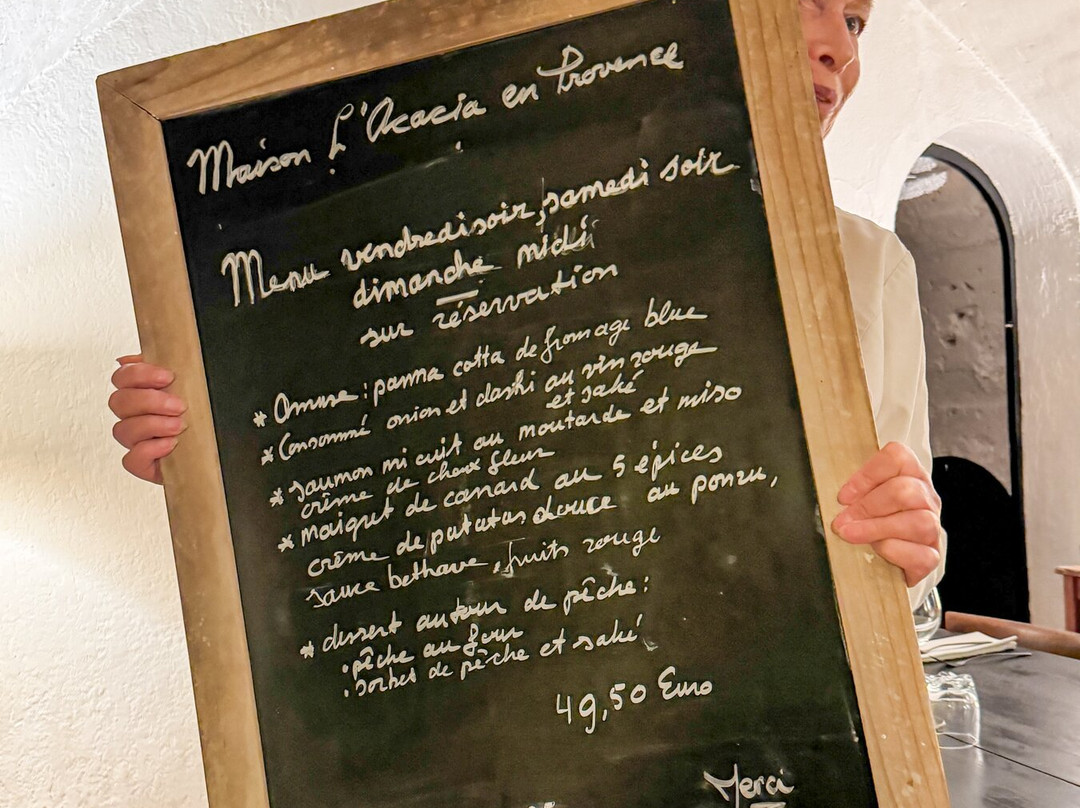 Maison L'Acacia en Provence
Menu vendredi soir, samedi soir
dimanche midi
sur réservation
* Amuse : panna cotta de fromage blue
* Consommé onion et dashi au vin rouge
et saké
* saumon mi cuit au moutarde et miso
crème de choux fleur
* maigret de canard au 5 épices
crème de patatas douce au ponzu,
sauce bethrave, fruits rouge
* dessert autour de pêche :
• pêche au four
• sorbet de pêche et saké
49,50 Euro
Merci